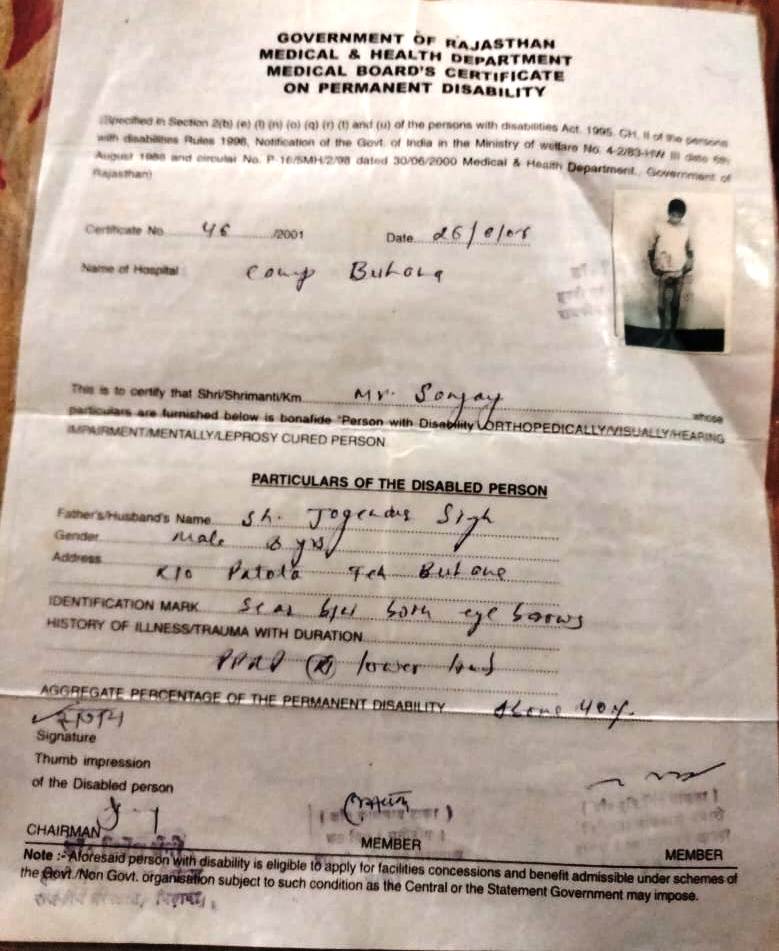 GOVERNMENT OF RAJASTHAN
MEDICAL & HEALTH DEPARTMENT
MEDICAL BOARD'S CERTIFICATE
ON PERMANENT DISABILITY
(Specified in Section 2(b) (e) (l) (n) (o) (q) (r) (t) and (u) of the persons with disabilities Act. 1995. CH. II of the persons
with disabilities Rules 1996, Notification of the Govt. of India in the Ministry of welfare No. 4-2/83-HW III date 6th
August 1986 and circular No. P-16/5MH/2/98 dated 30/06/2000 Medical & Health Department, Government of
Rajasthan)
Certificate No. 46 /2001 Date
Name of Hospital Camp Buhana
This is to certify that Shri/Shrimanti/Km Mr. Sanjay whose
particulars are furnished below is bonafide "Person with Disability ORTHOPEDICALLY/VISUALLY/HEARING
IMPAIRMENT/MENTALLY/LEPROSY CURED PERSON
PARTICULARS OF THE DISABLED PERSON
Father's/Husband's Name Sh. Jogender Singh
Gender Male 8 yrs
Address
R/o Patola Teh Buhana
IDENTIFICATION MARK Scar b/w both eye brows
HISTORY OF ILLNESS/TRAUMA WITH DURATION
PPRP (R) lower limb
AGGREGATE PERCENTAGE OF THE PERMANENT DISABILITY Above 40%
Signature
Thumb impression
of the Disabled person
CHAIRMAN MEMBER MEMBER
Note :- Aforesaid person with disability is eligible to apply for facilities concessions and benefit admissible under schemes of
the Govt./Non Govt. organisation subject to such condition as the Central or the Statement Government may impose.